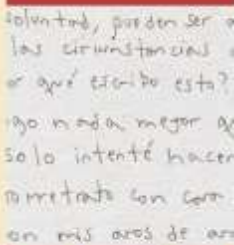 voluntad, pueden ser
las circunstancias
qué escribo esto?
nada mejor
solo intenté hacer
retrato con cara
mis aros de